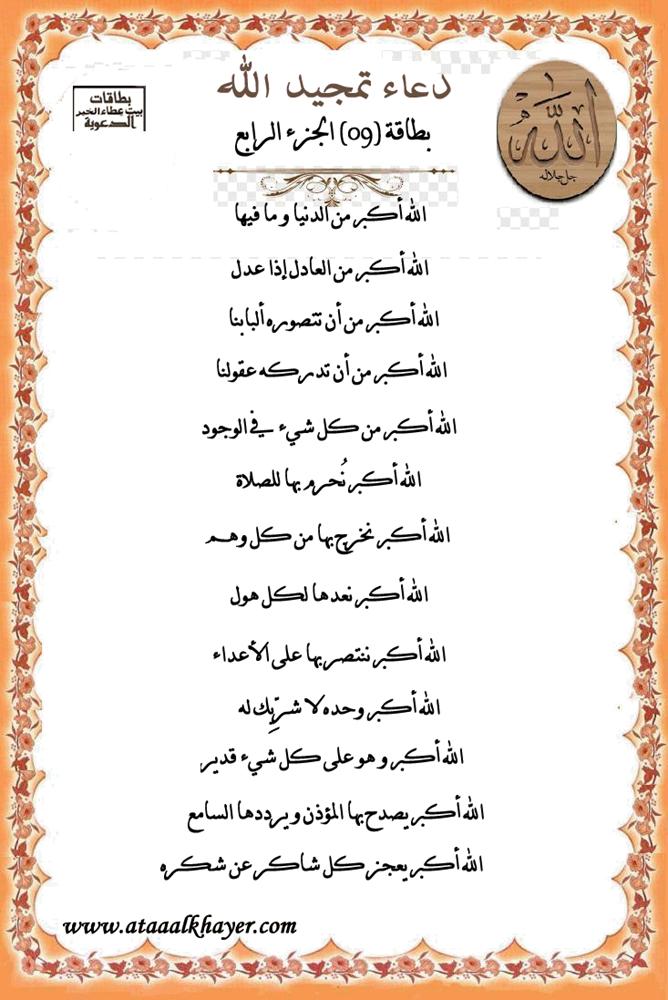 دعاء تمجيد الله
بطاقات
بيت عطاء الخير
الدعوية
الله
جل جلاله
بطاقة (09) الجزء الرابع
الله أكبر من الدنيا و ما فيها
الله أكبر من العادل إذا عدل
الله أكبر من أن تتصوره ألبابنا
الله أكبر من أن تدركه عقولنا
الله أكبر من كل شيء في الوجود
الله أكبر نُحرم بها للصلاة
الله أكبر نخرج بها من كل وهم
الله أكبر نعدها لكل هول
الله أكبر ننتصر بها على الأعداء
الله أكبر وحده لا شرِّيك له
الله أكبر و هو على كل شيء قدير
الله أكبر يصدح بها المؤذن و يرددها السامع
الله أكبر يعجز كل شاكر عن شكره
www.ataaalkhayer.com